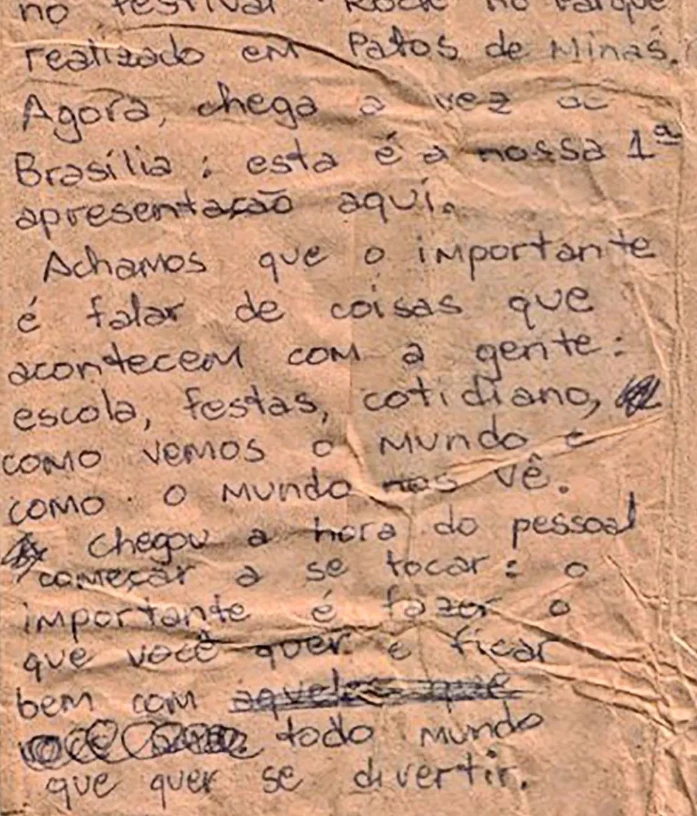 no festival Rock no Parque
realizado em Patos de Minas.
Agora, chega a vez de
Brasília: esta é a nossa 1ª
apresentação aqui.
Achamos que o importante
é falar de coisas que
acontecem com a gente:
escola, festas, cotidiano,
como vemos o mundo e
como o mundo nos vê.
Chegou a hora do pessoal
começar a se tocar: o
importante é fazer o
que você quer e ficar
bem com aqueles que
você todo mundo
que quer se divertir.